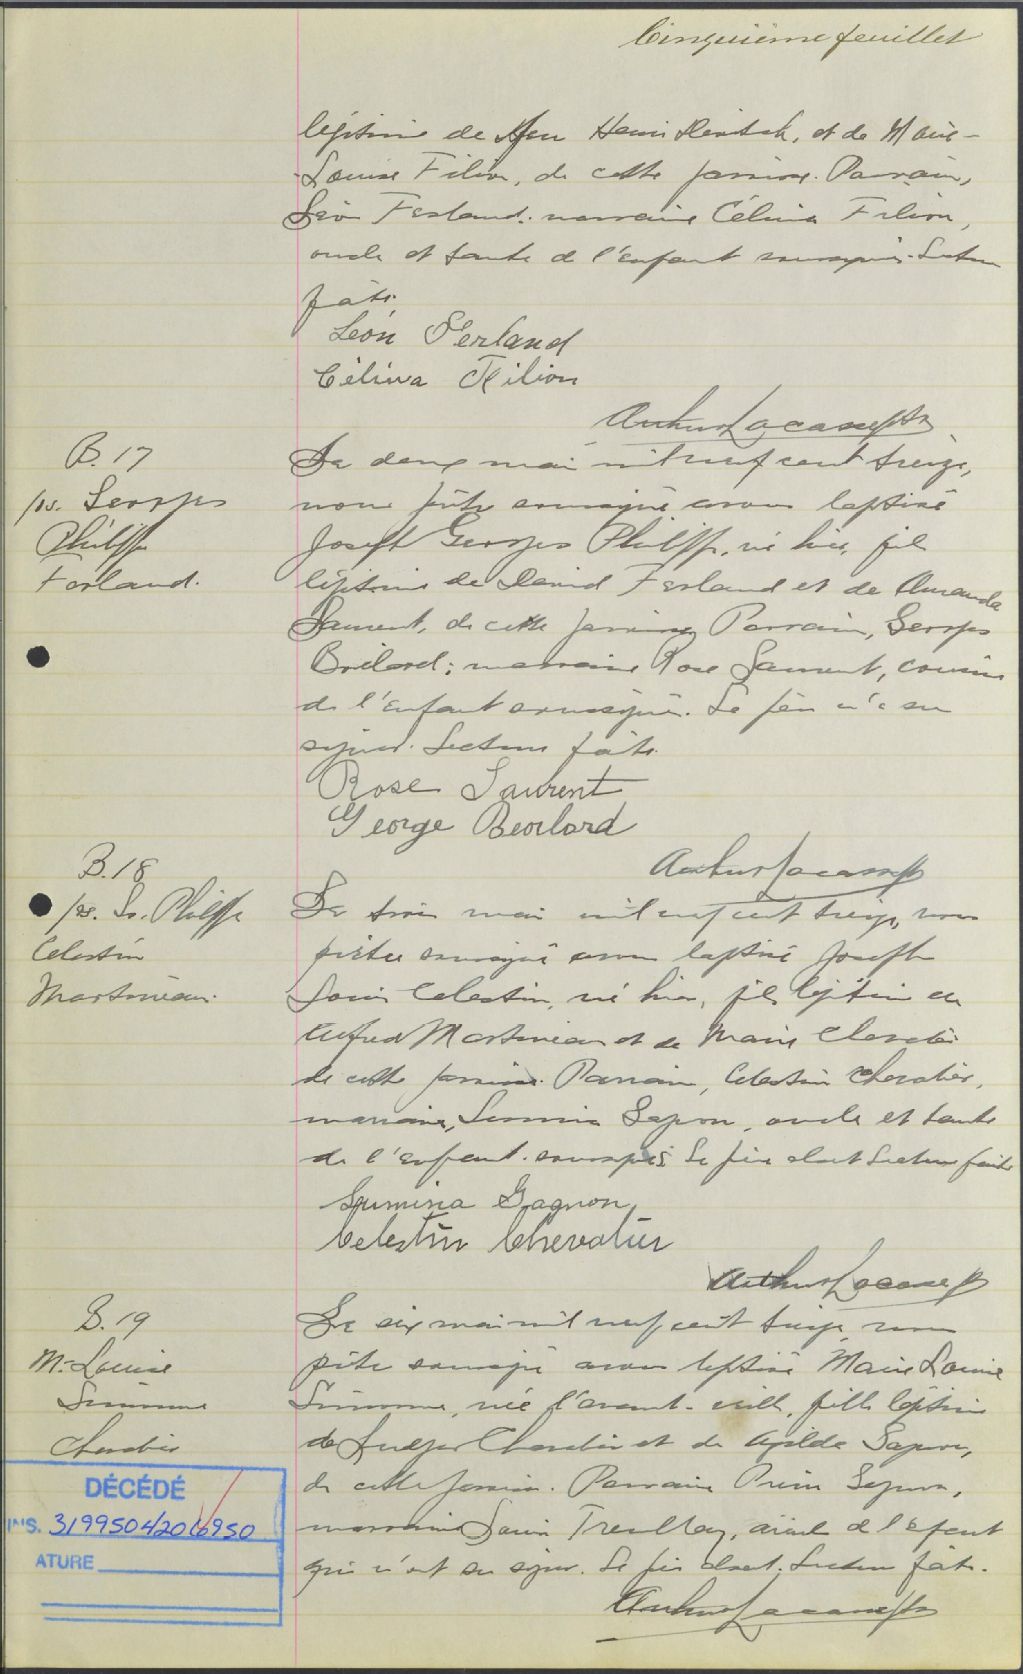 Cinquième feuillet
légitime de feu Henri et de Marie-
Louise Filion, de cette paroisse. Parrain,
Léon Ferland; marraine Célina Filion,
oncle et tante de l'enfant soussignés. Lecture
faite.
Léon Ferland
Célina Filion
Arthur Lacasse ptr
B. 17
Jos. Georges
Philippe
Ferland.
Le deux mai mil neuf cent treize,
nous prêtre soussigné avons baptisé
Joseph Georges Philippe, né hier, fils
légitime de David Ferland et de Amanda
Laurent, de cette paroisse. Parrain, Georges
marraine Rose Laurent, cousins
de l'enfant soussignés. Le père n'a su
signer. Lecture faite.
Rose Laurent
George
Arthur Lacasse ptr
B. 18
Jos. Ls. Philippe
Celestin
Martineau.
Le trois mai mil neuf cent treize, nous
prêtre soussigné avons baptisé Joseph
Louis Celestin, né hier, fils légitime de
Alfred Martineau et de Marie Chevalier
de cette paroisse. Parrain, Celestin Chevalier,
marraine, Gagnon, oncle et tante
de l'enfant soussignés. Le père absent. Lecture faite
Gagnon
Celestin Chevalier
Arthur Lacasse ptr
B. 19
M.-Louise
Simonne
Chevalier
Le six mai mil neuf cent treize nous
prêtre soussigné avons baptisé Marie Louise
Simonne, née l'avant-veille, fille légitime
de Chevalier et de Gagnon,
de cette paroisse. Parrain Gagnon,
marraine Tremblay, aïeuls de l'enfant
qui n'ont su signer. Le père absent. Lecture faite.
Arthur Lacasse ptr
DÉCÉDÉ
INS. 3199504/206950
ATURE